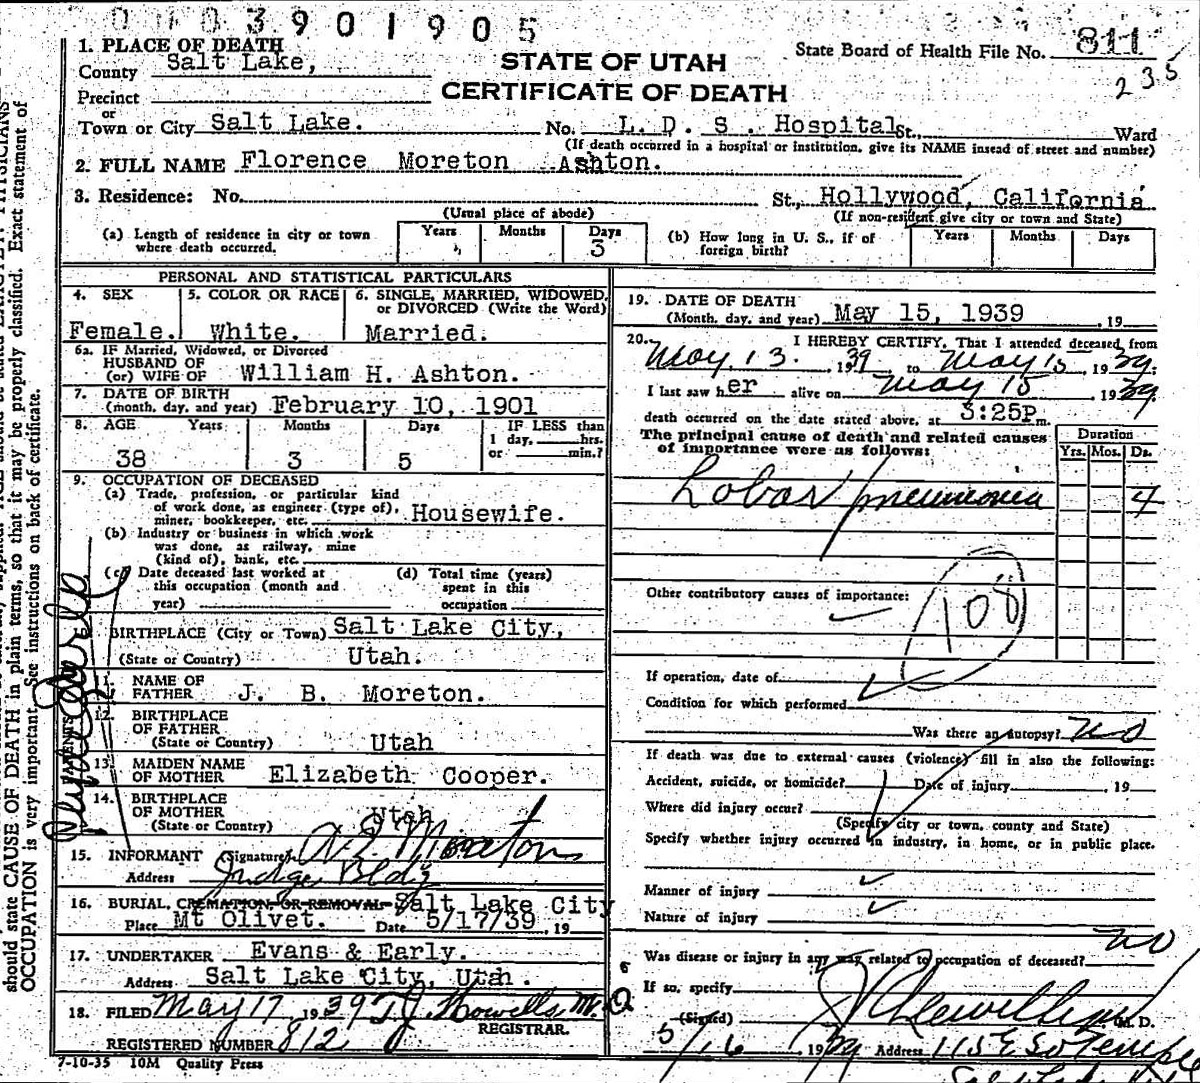 0003901905
1. PLACE OF DEATH
County Salt Lake,
Precinct
or
Town or City Salt Lake. No. L. D. S. Hospital St., Ward
(If death occurred in a hospital or institution, give its NAME insead of street and number)
STATE OF UTAH
CERTIFICATE OF DEATH
State Board of Health File No. 811
235
2. FULL NAME Florence Moreton Ashton.
3. Residence: No. St., Hollywood, California
(Usual place of abode) (If non-resident give city or town and State)
(a) Length of residence in city or town where death occurred. Years Months Days 3
(b) How long in U. S., if of foreign birth? Years Months Days
PERSONAL AND STATISTICAL PARTICULARS
4. SEX Female.
5. COLOR OR RACE White.
6. SINGLE, MARRIED, WIDOWED, or DIVORCED (Write the Word) Married.
6a. IF Married, Widowed, or Divorced
HUSBAND OF
(or) WIFE OF William H. Ashton.
7. DATE OF BIRTH
(month, day, and year) February 10, 1901
8. AGE Years 38 Months 3 Days 5 IF LESS than 1 day, hrs. or min.?
9. OCCUPATION OF DECEASED
(a) Trade, profession, or particular kind
of work done, as engineer (type of),
miner, bookkeeper, etc. Housewife.
(b) Industry or business in which work
was done, as railway, mine
(kind of), bank, etc.
(c) Date deceased last worked at this occupation (month and year)
(d) Total time (years) spent in this occupation
BIRTHPLACE (City or Town) Salt Lake City,
(State or Country) Utah.
11. NAME OF
FATHER J. B. Moreton.
12. BIRTHPLACE
OF FATHER
(State or Country) Utah
13. MAIDEN NAME
OF MOTHER Elizabeth Cooper.
14. BIRTHPLACE
OF MOTHER
(State or Country) Utah
15. INFORMANT (Signature) A. E. Moreton
Address Judge Bldg
16. BURIAL, CREMATION OR REMOVAL Salt Lake City
Place Mt Olivet. Date 5/17/39, 19
17. UNDERTAKER Evans & Early.
Address Salt Lake City, Utah.
18. FILED May 17 1939 T. J. Howells M.D.
REGISTRAR.
REGISTERED NUMBER 812
7-10-35 10M Quality Press
19. DATE OF DEATH
(Month, day, and year) May 15, 1939, 19
20. I HEREBY CERTIFY, That I attended deceased from
May 13 1939, to May 15, 1939;
I last saw her alive on May 15 1939
death occurred on the date stated above, at 3:25P m.
The principal cause of death and related causes
of importance were as follows:
Duration
Yrs. Mos. Ds.
Lobar pneumonia 4
Other contributory causes of importance:
108
If operation, date of
Condition for which performed
Was there an autopsy? no
If death was due to external causes (violence) fill in also the following:
Accident, suicide, or homicide? Date of injury , 19
Where did injury occur?
(Specify city or town, county and State)
Specify whether injury occurred in industry, in home, or in public place.
Manner of injury
Nature of injury
Was disease or injury in any way related to occupation of deceased? no
If so, specify
(Signed) M. D.
5/16 1939 Address 115 E So Temple
should state CAUSE OF DEATH in plain terms, so that it may be properly classified. Exact statement of
OCCUPATION is very important. See instructions on back of certificate.